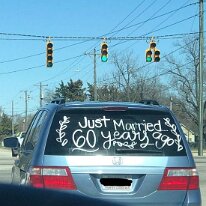 Just Married
60 years ago